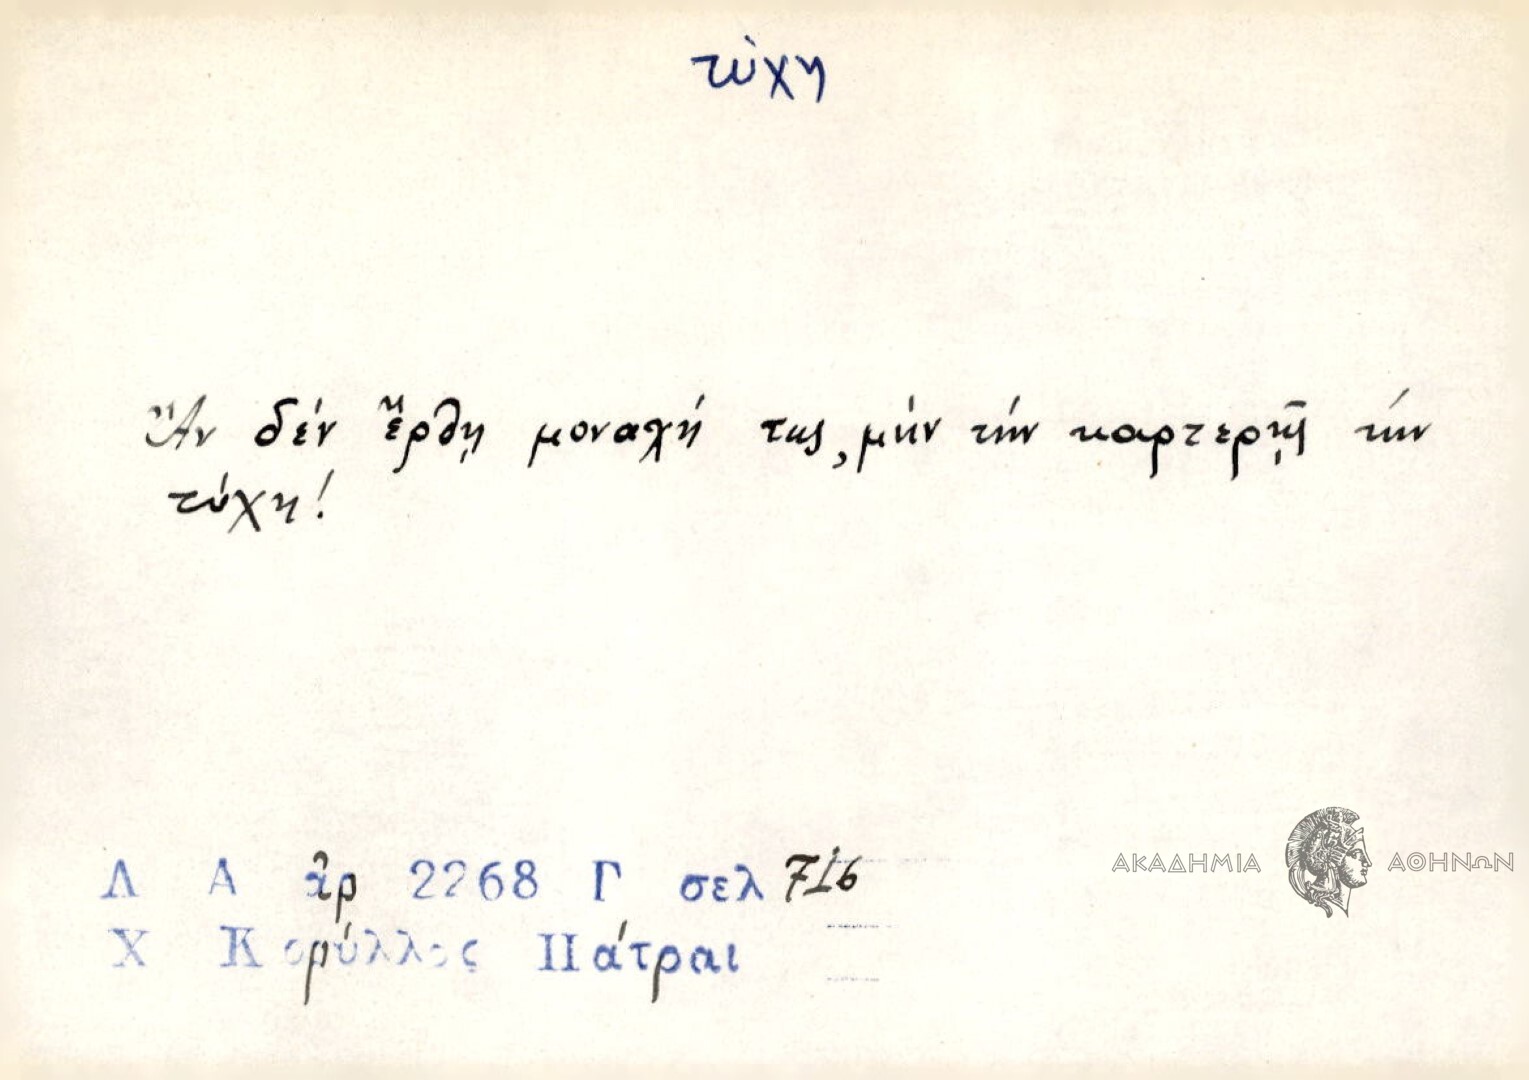 τύχη
Ἄν δέν ἔρθῃ μοναχή της, μήν τήν καρτερῇς τήν
τύχη!
Λ Α ἀρ 2268 Γ σελ 716
Χ Κορύλλος Πάτραι
ΑΚΑΔΗΜΙΑ ΑΘΗΝΩΝ